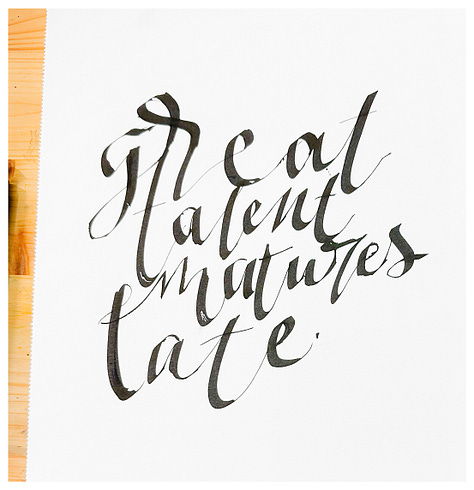 Great
talent
matures
late.